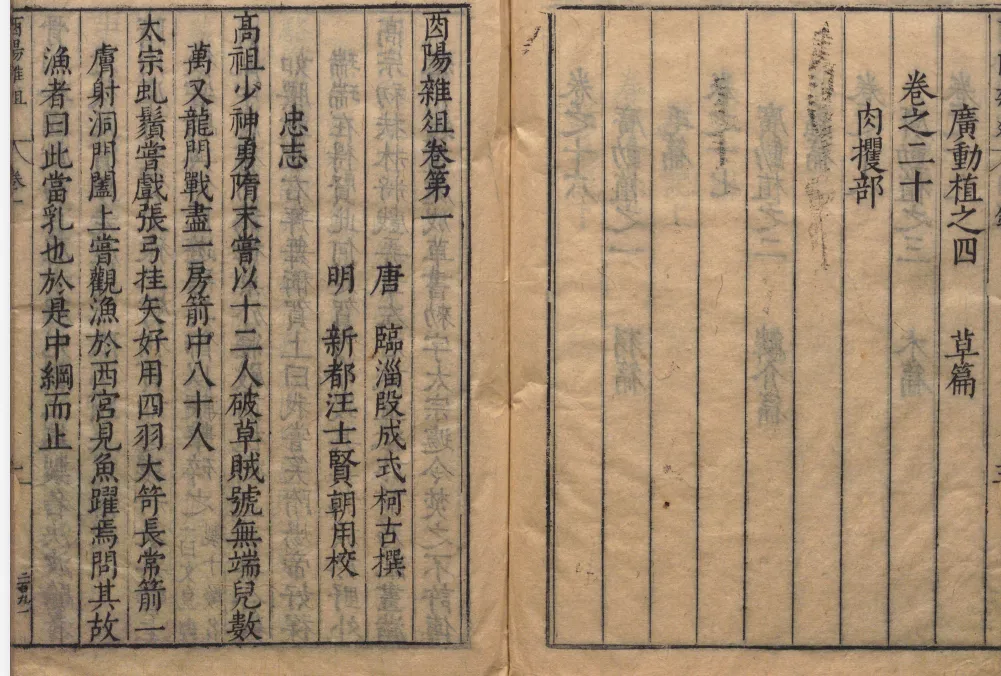 廣動植之四 草篇
卷之二十
肉攫部
酉陽雜俎卷第一
唐 臨淄段成式柯古撰
明 新都汪士賢朝用校
忠志
高祖少神勇隋末嘗以十二人破草賊號無端兒數
萬又龍門戰盡一房箭中八十人
太宗虬鬚嘗戲張弓挂矢好用四羽大笴長常箭一
膚射洞門闔上嘗觀漁於西宮見魚躍焉問其故
漁者曰此當乳也於是中綱而止
酉陽雜俎 卷一